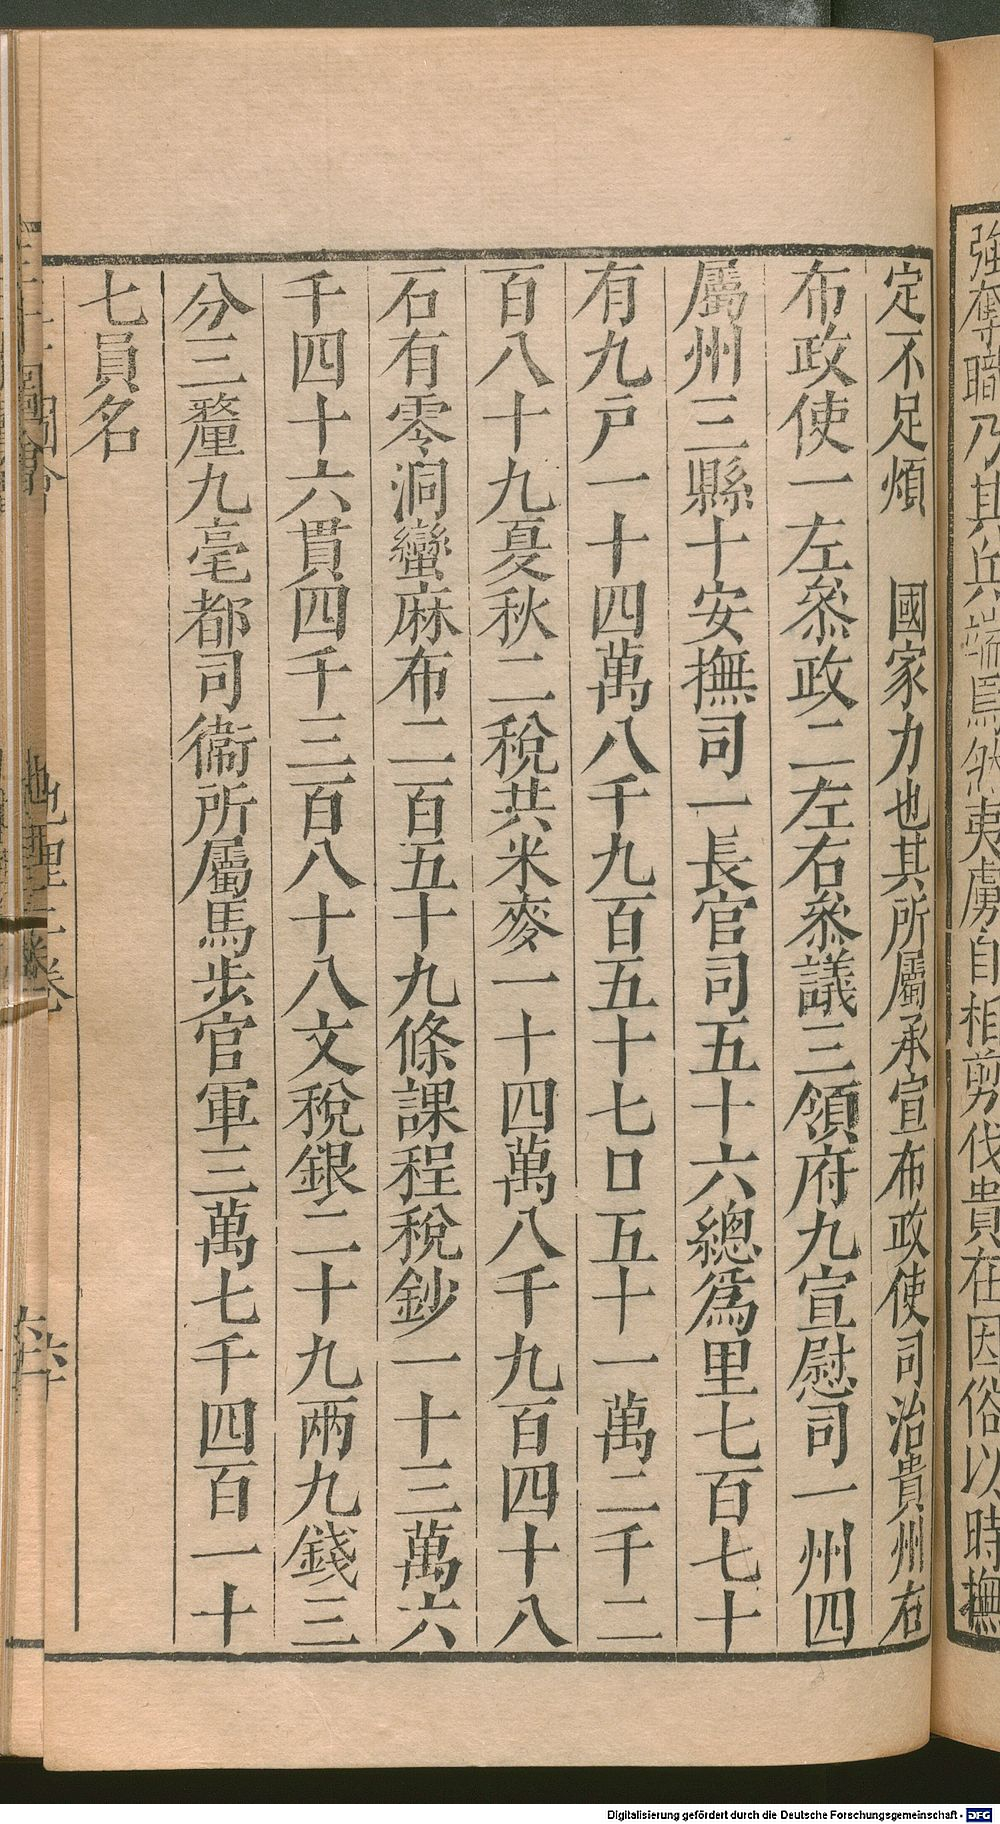 強奪職乃其兵端焉然夷虜自相剪伐貴在因俗以時撫
定不足煩　國家力也其所屬承宣布政使司治貴州右
布政使一左叅政二左右叅議三領府九宣慰司一州四
屬州三縣十安撫司一長官司五十六總爲里七百七十
有九戸一十四萬八千九百五十七口五十一萬二千二
百八十九夏秋二稅共米麥一十四萬八千九百四十八
石有零洞蠻麻布二百五十九條課程稅鈔一十三萬六
千四十六貫四千三百八十八文稅銀二十九兩九錢三
分三釐九毫都司衞所屬馬步官軍三萬七千四百一十
七員名
地理十二卷
Digitalisierung gefördert durch die Deutsche Forschungsgemeinschaft - DFG